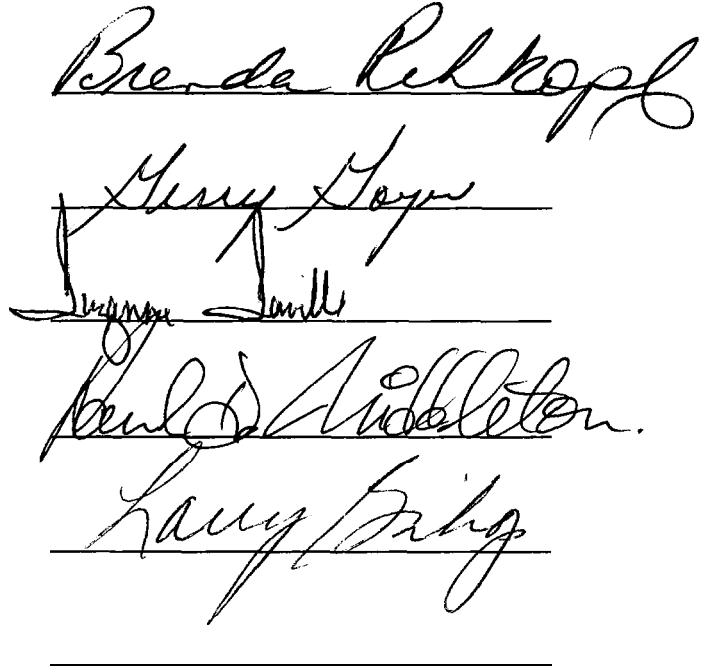 Brenda Rehkopf
Gerry Goyer
Suzanne Saville
Paul D. Middleton.
Larry